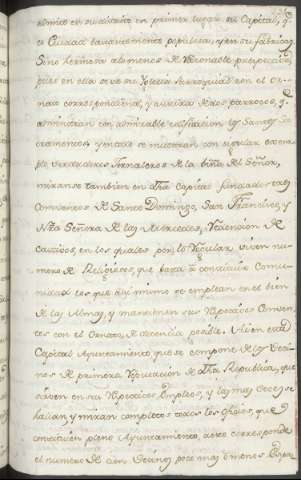 admira en su distrito en primer lugar su Capital, q.e
es Ciudad bastantemente populosa, y en su fabrica
sino hermosa alomenos de razonable perspectiva,
pues en ella se ve su Yglesia Parroquial con el or-
nato correspondiente, y asistida de dos Parrocos, q.e
administran con admirable edificacion los Santos Sa-
cramentos y en todo se muestran con singular exem-
plo verdaderos Jornaleros de la Viña del Señor,
miranse tambien en dha Capital fundados tres
Conventos de Santo Domingo, San Francisco, y
Ntra Señora de las Mercedes, Redencion de
Cautivos, en los quales por lo regular viven nu-
mero de Religiosos, que basta a constituir Comu-
nidad los que asi mismo se emplean en el bien
de las Almas, y mantienen sus respectivos Conven-
tos con el ornato, y decencia posible. Ay en esta
Capital Ayuntamiento, que se compone de los Veci-
nos de primera reputacion de dha Republica, que
sirven en sus respectivos Empleos, y las mas veces se
hallan, y miran completos todos los oficios, que
constituien pleno Ayuntamiento, a este corresponde
el numero de cien Vecinos poco mas, ô menos Espa-